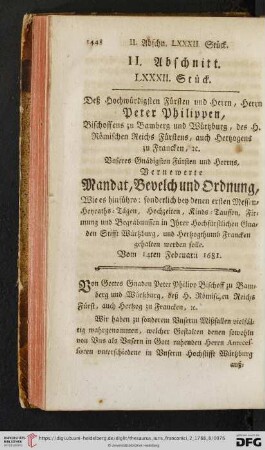 1448 II. Abschn. LXXXII. Stück.
II. Abschnitt.
LXXXII. Stück.
Deß Hochwürdigsten Fürsten und Herrn, Herrn
Peter Philippen,
Bischoffens zu Bamberg und Würtzburg, des H.
Römischen Reichs Fürstens, auch Hertzogens
zu Francken, ꝛc.
Unseres Gnädigsten Fürsten und Herrns,
Vernewerte
Mandat, Bevelch und Ordnung,
Wie es hinführo: sonderlich bey denen ersten Messen,
Heyraths-Tägen, Hochzeiten, Kinds-Tauffen, Fir-
mung und Begräbnussen in Jhrer Hochfürstlichen Gna-
den Stifft Würtzburg, und Hertzogthumb Francken
gehalten werden solle.
Vom 14ten Februarii 1681.
Von Gottes Gnaden Peter Philips Bischoff zu Bam-
berg und Würtzburg, deß H. Römisch. Reichs
Fürst, auch Hertzog zu Francken, ꝛc.
Wir haben zu sonderem Unserm Mißfallen vielfäl-
tig wahrgenommen, welcher Gestalten denen sowohln
von Uns als Unsern in Gott ruhenden Herrn Anteces-
soren unterschiedene in Unserm Hochstifft Würtzburg
auß:
https://digi.ub.uni-heidelberg.de/diglit/thesaurus_juris_franconici_2_1788_8/0076
© Universitätsbibliothek Heidelberg
UNIVERSITÄTS-
BIBLIOTHEK
HEIDELBERG
gefördert durch die
DFG